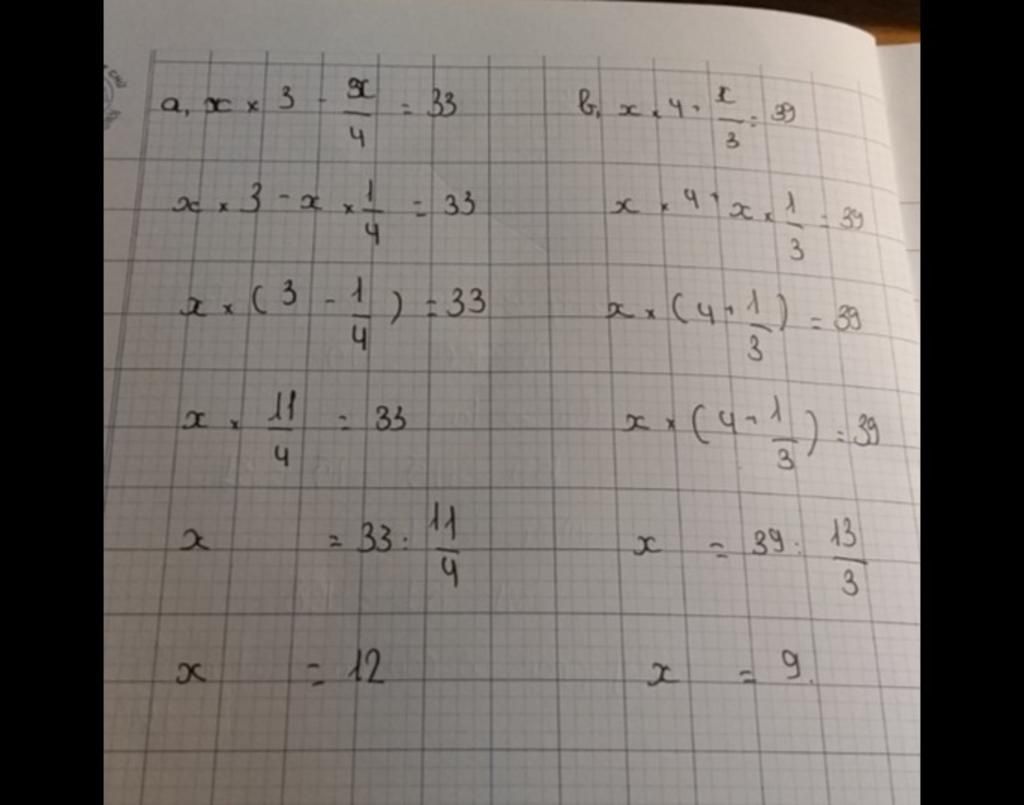 a, x × 3 - x/4 = 33
x × 3 - x × 1/4 = 33
x × (3 - 1/4) = 33
x × 11/4 = 33
x = 33 : 11/4
x = 12
b, x × 4 + x/3 = 39
x × 4 + x × 1/3 = 39
x × (4 + 1/3) = 39
x × (4 + 1/3) = 39
x = 39 : 13/3
x = 9.